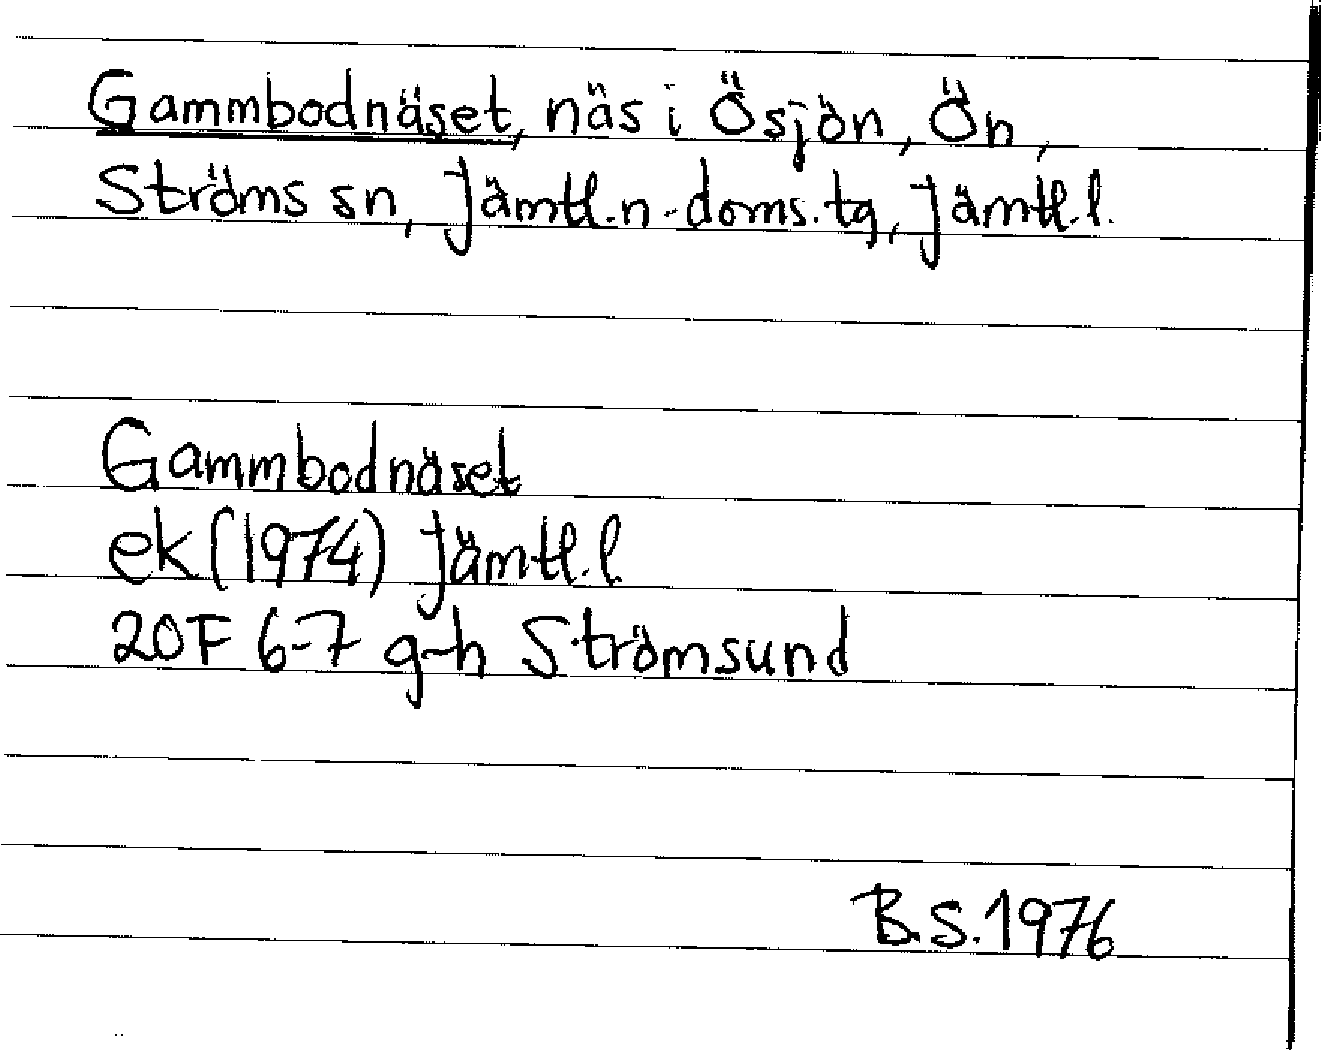 Gammbodnäset, näs i Ösjön, Ön,
Ströms sn, Jämtl.n.doms.tg, Jämtl.l.
Gammbodnäset
ek (1974) Jämtl.l.
20F 6-7 g-h Strömsund
B.S.1976